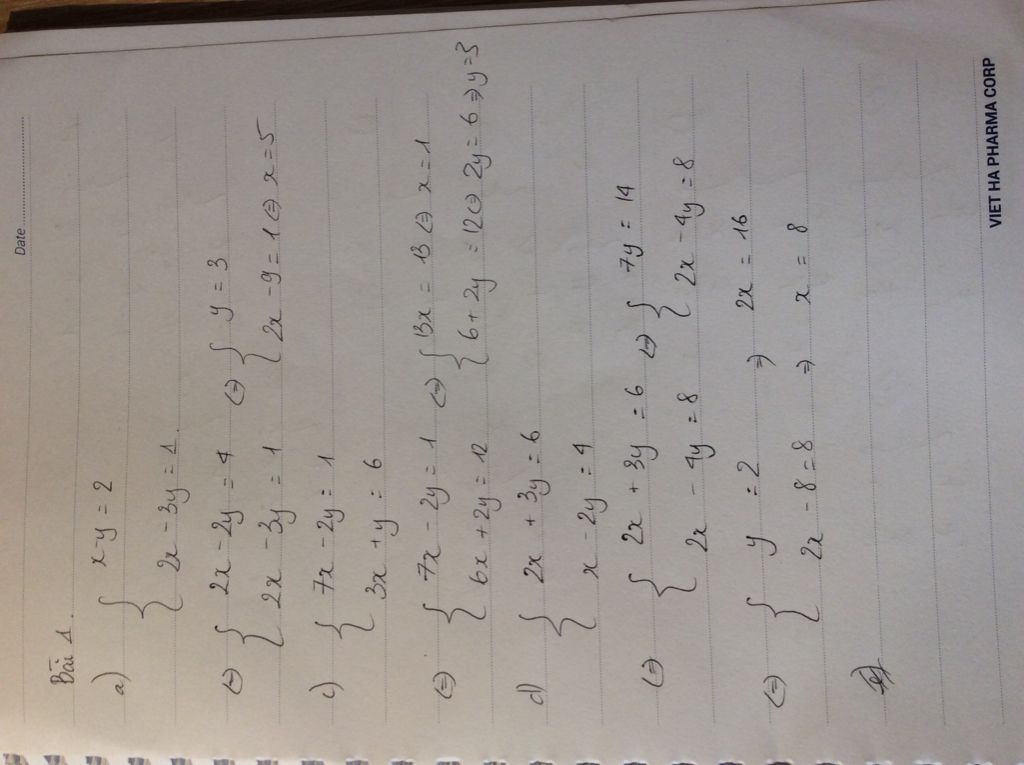 Date
Bài 1.
a) { x - y = 2
2x - 3y = 1.
(=) { 2x - 2y = 4 (=) { y = 3
2x - 3y = 1 2x - 9 = 1 (=) x = 5
c) { 7x - 2y = 1
3x + y = 6
(=) { 7x - 2y = 1 (=) { 13x = 13 (=) x = 1
6x + 2y = 12 6 + 2y = 12 (=) 2y = 6 => y = 3
d) { 2x + 3y = 6
x - 2y = 4
(=) { 2x + 3y = 6 (=) { 7y = 14
2x - 4y = 8 2x - 4y = 8
(=) { y = 2 => 2x = 16
2x - 8 = 8 => x = 8
VIET HA PHARMA CORP